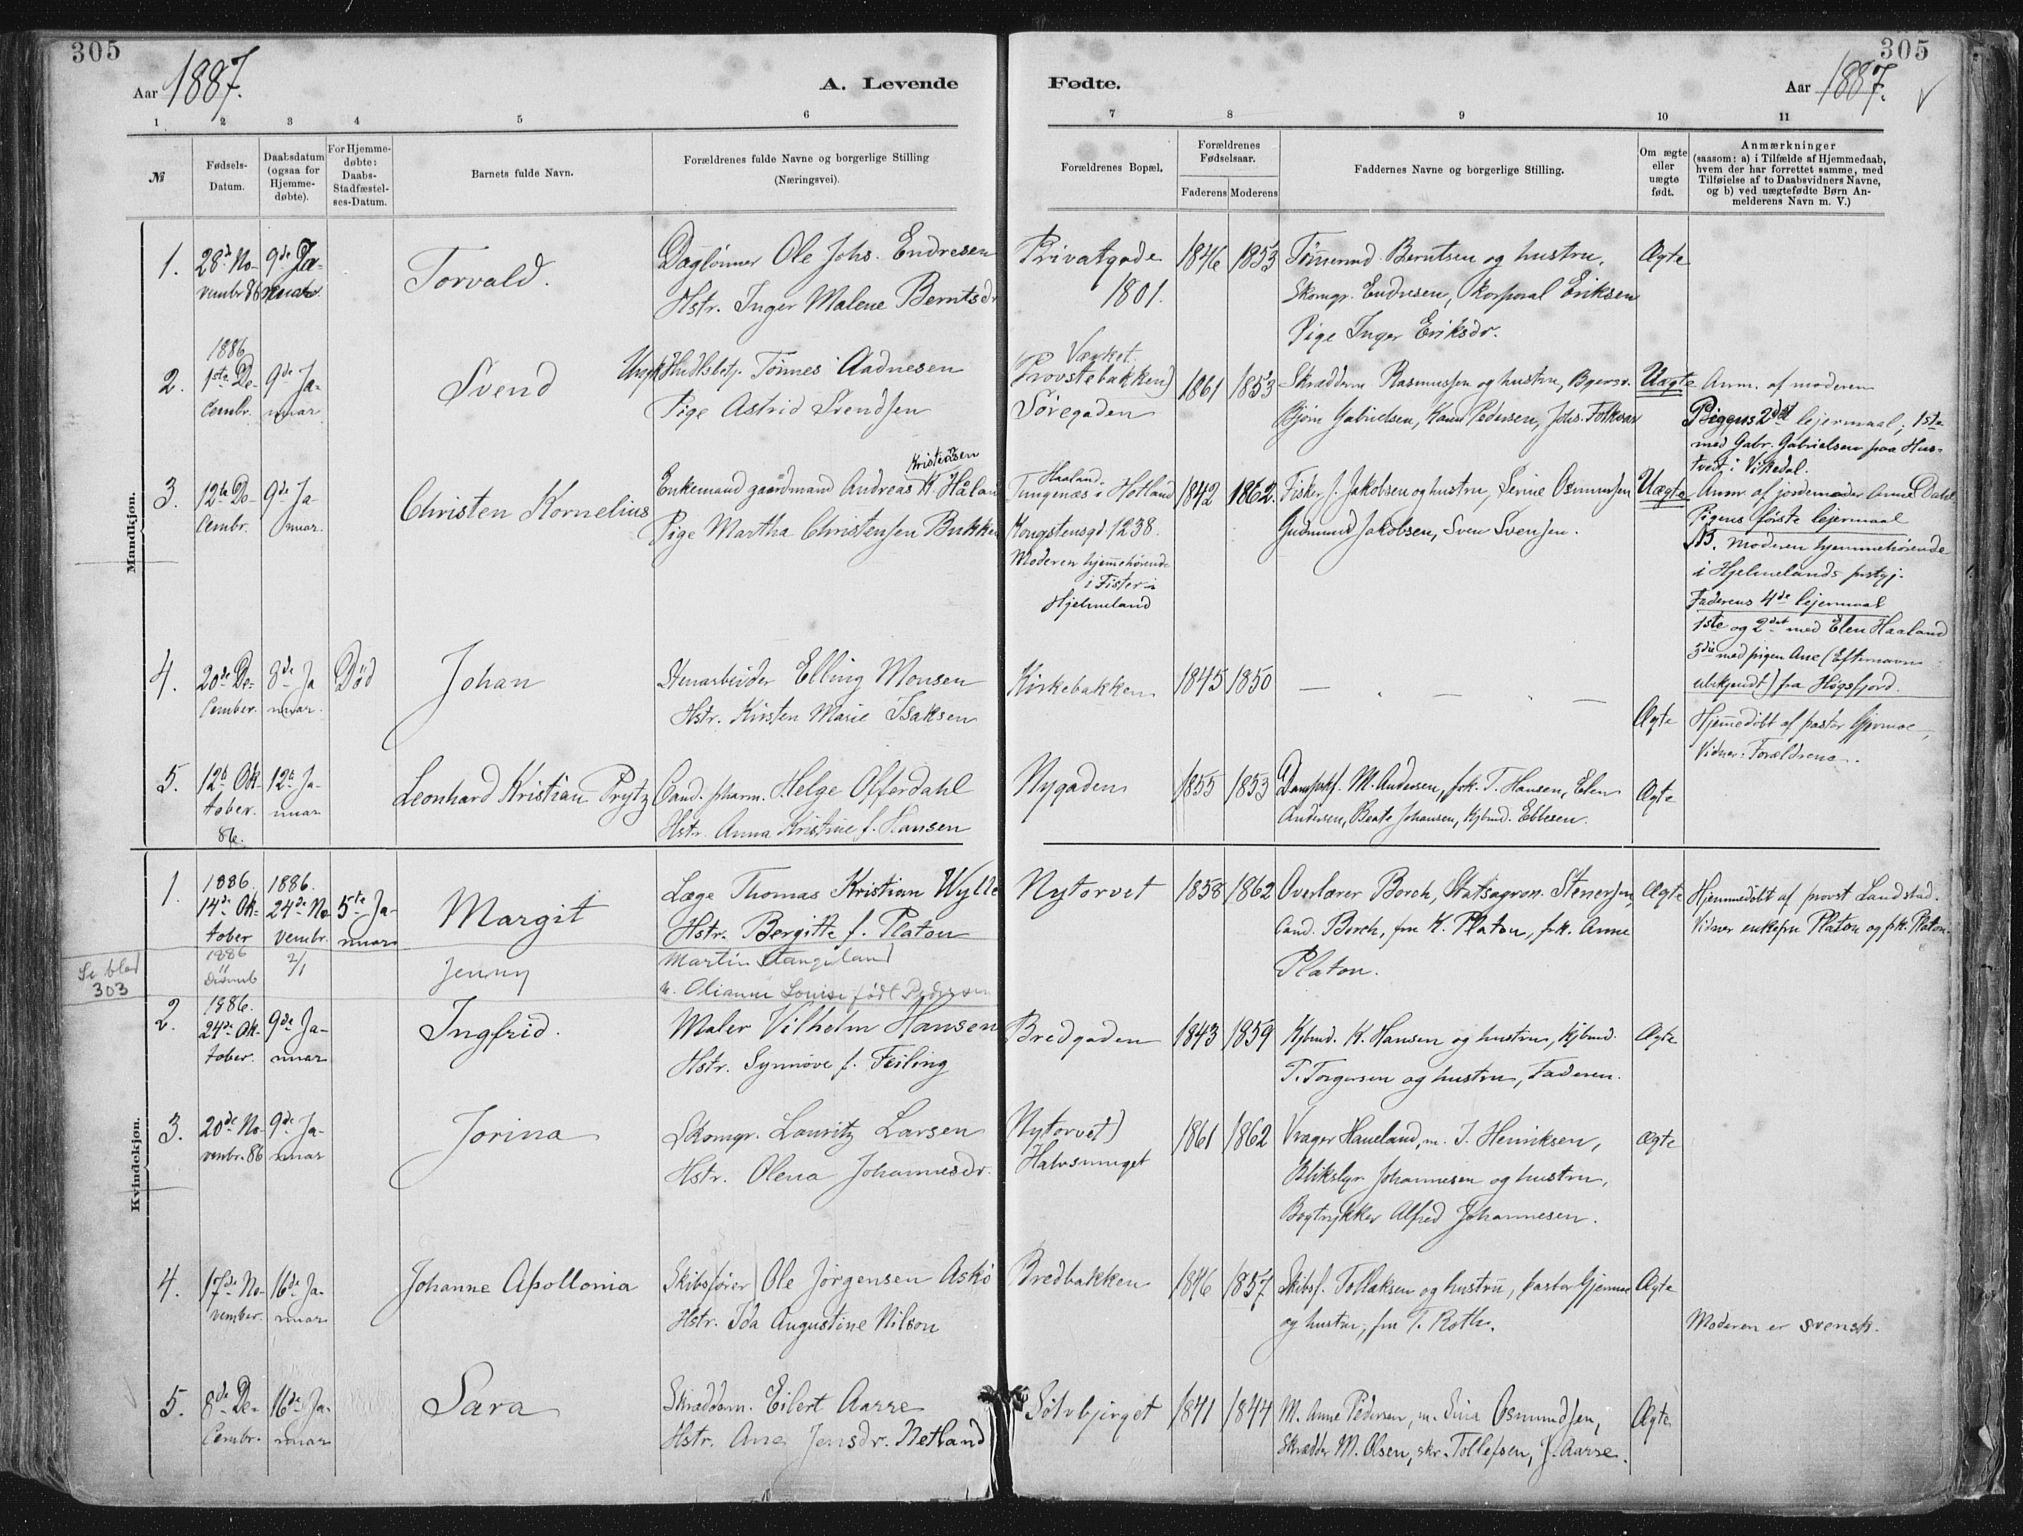 305
305
Aar 1887.
A. Levende
Fødte.
Aar 1887.
1 2 3 4 5 6 7 8 9 10 11
№
Fødsels-
Datum.
Daabsdatum
(ogsaa for
Hjemme-
døbte).
For Hjemme-
døbte:
Daabs-
Stadfæstel-
ses-Datum.
Barnets fulde Navn.
Forældrenes fulde Navne og borgerlige Stilling
(Næringsvei).
Forældrenes Bopæl.
Forældrenes
Fødselsaar.
Faderens Moderens
Faddernes Navne og borgerlige Stilling.
Om ægte
eller
uægte
født.
Anmærkninger
(saasom: a) i Tilfælde af Hjemmedaab,
hvem der har forrettet samme, med
Tilføielse af to Daabsvidners Navne,
og b) ved uægtefødte Børn An-
melderens Navn m. V.)
Mandkjøn.
1.
28de No-
vembr 86
9de Ja-
nuar
Torvald.
Daglønner Ole Johs. Endresen
Hstr. Inger Malene Berntsdr
Privatgade
1801.
1846 1853
Tømmermd. Berntsen og hustru,
Skomgr. Endresen, Korporal Eriksen
Pige Inger Eriksdr.
Ægte
2.
1886
1ste De-
cembr.
9de Ja-
nuar
Svend
Ungk. Hndlsbetj. Tønnes Aadnesen
Pige Astrid Svendsen
Værket
Provstebakken)
Søregaden
1861 1853
Skrædderm. Rasmussen og hustru,
Bjørn Gabrielsen, Knud Pedersen, Johs. Folkvar
Uægte
Anm. af moderen
Pigens 2det lejermaal; 1ste
med Gabr. Gabrielsen paa Hus-
tvedt i Vikedal.
3.
12te De-
cembr.
9de Ja-
nuar.
Christen Kornelius
Kristensen
Enkemand gaardmand Andreas K. Håland
Pige Martha Christensen Bukken
Haaland
Tungenæs i Hetland
Kongstensgd 1238.
Moderen hjemmehørende
i Fister i
Hjelmeland
1842 1862.
Fisker J. Jakobsen og hustru, Serine Osmundsen
Gudmund Jakobsen, Sven Svensen.
Uægte
Anm. af jordemoder Anne Dahl
Pigens første lejermaal
NB. Moderen hjemmehørende
i Hjelmelands prstgj.
Faderens 4de lejermaal
1ste og 2det med Elen Haaland
3die med pigen Ane (Efternavn
ubekjendt) fra Høgsfjord.
4.
20de De-
cember.
8de Ja-
nuar.
Død
Johan
Stenarbeider Elling Monsen
Hstr. Kirsten Marie Isaksen
Kirkebakken
1845 1850
Ægte
Hjemmedøbt af pastor Gjermoe,
Vidner: Forældrene.
5.
12te Ok-
tober.
86.
12te Ja-
nuar
Leonhard Kristian Prytz
Cand. pharm. Helge Offerdahl
Hstr. Anna Kristine f. Hansen
Nygaden
1855 1853
Dampskf. M. Andersen, frk. T. Hansen, Elen
Andersen, Beate Johansen, Kjbmd. Ebbesen.
Ægte
Kvindekjøn.
1.
1886.
14de Ok-
tober
1886.
24de No-
vembr.
5te Ja-
nuar
Margit
Læge Thomas Kristian Wylle
Hstr. Bergitte f. Platou
Nytorvet
1858 1862
Overlærer Borch, Statsagron. Stenersen,
Cand. Borch, fru K. Platou, frk. Anne
Platou.
Ægte
Hjemmedøbt af provst Landstad.
Vidner enkefru Platou og frk. Platou
Se blad
303
1886
11
Decemb
2/1
Jenny
Martin Stangeland
h. Olianne Louise født Pedersen
2.
1886.
24de Ok-
tober.
9de Ja-
nuar
Ingfrid.
Maler Vilhelm Hansen
Hstr. Synnøve f. Feiling
Bredgaden
1843 1859
Kjbmd. K. Hansen og hustru, Kjbmd.
T. Torgersen og hustru, Faderen.
Ægte
3.
20de No-
vembr. 86
9de Ja-
nuar
Jorina
Skomgr. Lauritz Larsen
Hstr. Olena Johannesdr.
Nytorvet)
Halvsmuget
1861 1862
Vrager Haneland, m. J. Henriksen,
Blikslgr. Johannesen og hustru,
Bogtrykker Alfred Johannesen.
Ægte
4.
17de No-
vember.
16de Ja-
nuar
Johanne Apollonia
Skibsfører Ole Jørgensen Askø
Hstr. Ida Augustine Nilson
Bredbakken
1846 1857
Skibsf. Tollaksen og hustru, pastor Gjermoe
og hustru, fru T. Roth.
Ægte
Moderen er svensk.
5.
8de De-
cembr.
16de Ja-
nuar
Sara
Skrædderm. Eilert Aarre
Hstr. Ane Jensdr. Netland
Sølvbjerget
1841 1844
M. Anne Pedersen, m. Sina Osmundsen,
Skrædder M. Olsen, skr. Tollefsen, J. Aarre.
Ægte